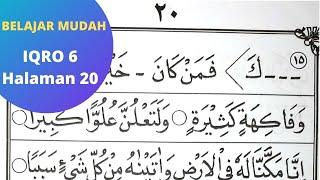 BELAJAR MUDAH
IQRO 6
Halaman 20
٢٠
١٥
ـ ـ ـ كَ > فَمَنْ كَانَ -
وَفَاكِهَةٍ كَثِيْرَةٍ ○ وَلَتَعْلُنَّ عُلُوًّا كَبِيْرًا
اِنَّا مَكَّنَّالَهُ فِى الْاَرْضِ وَاٰتَيْنٰهُ مِنْ كُلِّ شَيْءٍ سَبَبًا